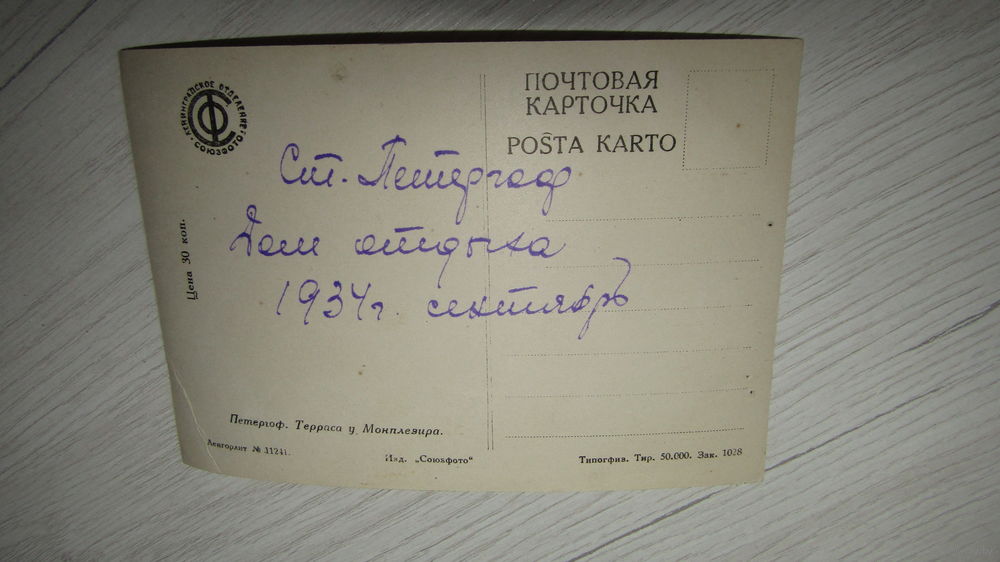 ЛЕНИНГРАДСКОЕ ОТДЕЛЕНИЕ
СОЮЗФОТО
ПОЧТОВАЯ
КАРТОЧКА
POŜTA KARTO
Ст. Петергоф
Дом отдыха
1934 г. сентябрь
Цена 30 коп.
Петергоф. Терраса у Монплезира.
Ленгорлит № 11241.
Изд. „Союзфото“
Типогфив. Тир. 50.000. Зак. 1028